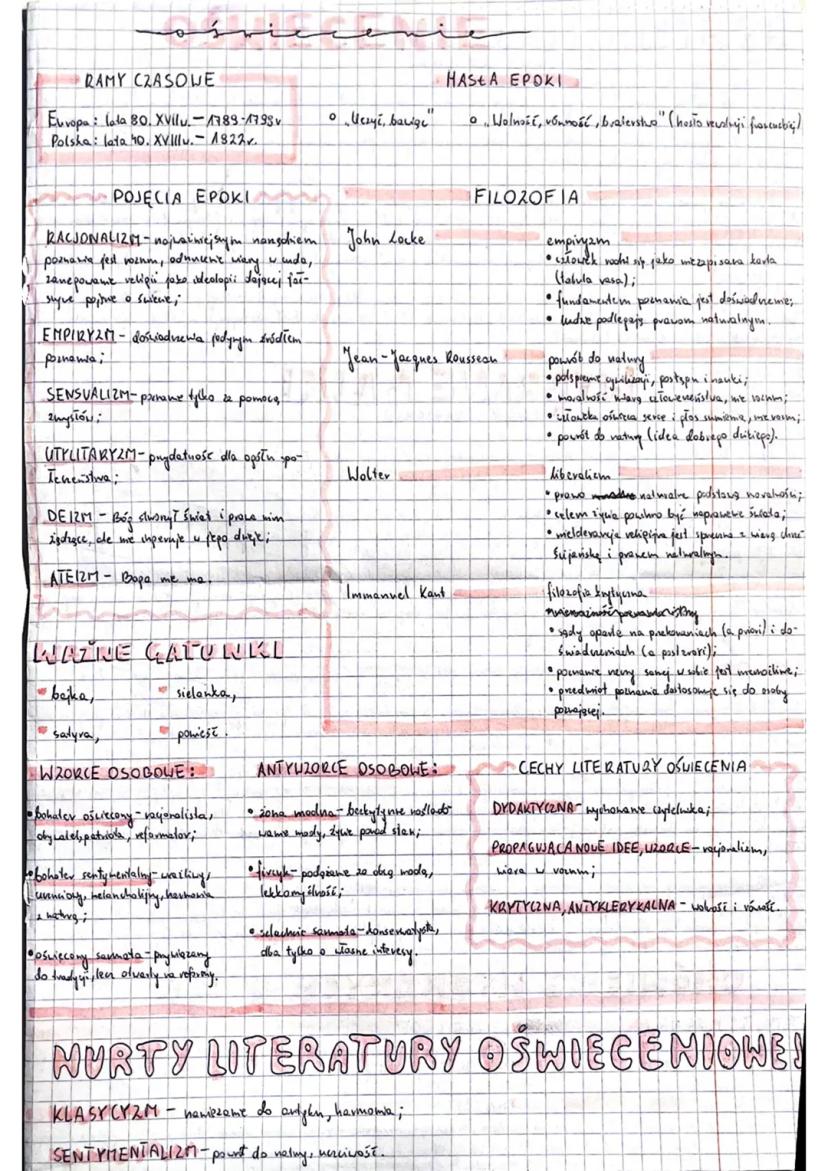 oświecenie
RAMY CZASOWE
Europa: lata 80. XVII w. – 1789-1799 r
Polska: lata 40. XVIII w. – 1822 r.
HASŁA EPOKI
"Uczyć, bawiąc"
"Wolność, równość, braterstwo" (hasło rewolucji francuskiej)
POJĘCIA EPOKI
RACJONALIZM – najważniejszym narzędziem
poznania jest rozum, odrzucenie wiary w cuda,
zanegowanie religii jako ideologii dającej fał-
szywe pojęcie o świecie;
EMPIRYZM – doświadczenia jedynym źródłem
poznania;
SENSUALIZM – poznanie tylko za pomocą
zmysłów;
UTYLITARYZM – przydatność dla ogółu spo-
łeczeństwa;
DEIZM – Bóg stworzył świat i prawa nim
rządzące, ale nie ingeruje w jego dzieje;
ATEIZM – Boga nie ma.
FILOZOFIA
John Locke
empiryzm
• człowiek rodzi się jako niezapisana karta
(tabula rasa);
• fundamentem poznania jest doświadczenie;
• ludzie podlegają prawom naturalnym.
Jean-Jacques Rousseau
powrót do natury
• potępienie cywilizacji, postępu i nauki;
• moralność miarą człowieczeństwa, nie rozum;
• człowieka oświeca serce i głos sumienia, nie rozum;
• powrót do natury (idea dobrego dzikiego).
Wolter
liberalizm
• prawo naturalne podstawą moralności;
• celem życia powinno być naprawienie świata;
• nietolerancja religijna jest sprzeczna z wiarą chrze-
ścijańską i prawem naturalnym.
Immanuel Kant
filozofia krytyczna
• sądy oparte na przekonaniach (a priori) i do-
świadczeniach (a posteriori);
• poznanie rzeczy samej w sobie jest niemożliwe;
• przedmiot poznania dostosowuje się do osoby
poznającej.
WAŻNE GATUNKI
bajka,
sielanka,
satyra,
powieść.
WZORCE OSOBOWE:
• bohater oświecony – racjonalista,
obywatel, patriota, reformator;
• bohater sentymentalny – wrażliwy,
uczuciowy, melancholijny, harmonia
z naturą;
• oświecony sarmata – przywiązany
do tradycji, lecz otwarty na reformy.
ANTYWZORCE OSOBOWE:
• żona modna – bezkrytyczne naślado
wanie mody, życie ponad stan;
• fircyk – podążanie za obcą modą,
lekkomyślność;
• szlachcic sarmata – konserwatysta,
dba tylko o własne interesy.
CECHY LITERATURY OŚWIECENIA
DYDAKTYCZNA – wychowanie czytelnika;
PROPAGUJĄCA NOWE IDEE, WZORCE – racjonalizm,
wiara w rozum;
KRYTYCZNA, ANTYKLERYKALNA – wolność i równość.
NURTY LITERATURY OŚWIECENIOWEJ
KLASYCYZM – nawiązanie do antyku, harmonia;
SENTYMENTALIZM – powrót do natury, uczciwość.